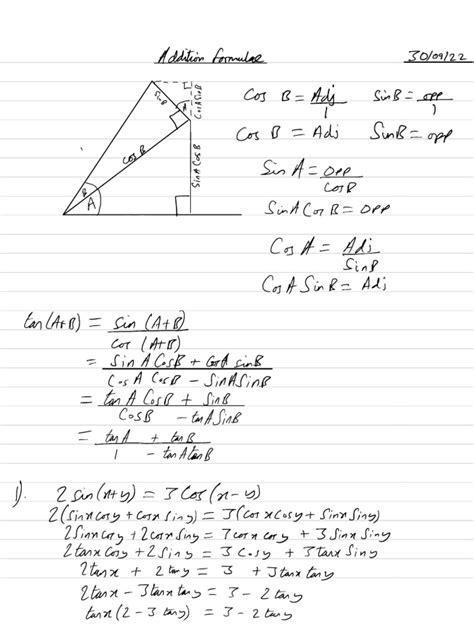 Addition Formulae 30/09/22
Cos B = Adj/1 Sin B = opp/1
Cos B = Adj Sin B = opp
Sin A = opp/CosB
Sin A Cos B = opp
Cos A = Adj/SinB
Cos A Sin B = Adj
SinB
A
CosASinB
CosB
SinACosB
B
A
tan(A+B) = sin(A+B)/cos(A+B)
= SinACosB + CosA sinB/CosA CosB - SinASinB
= tanA CosB + SinB/CosB - tanASinB
= tanA + tanB/1 - tanAtanB
1). 2 sin(x+y) = 3 cos(x-y)
2(sinxcosy + cosx siny) = 3(cosxcosy + sinx siny)
2sinxcosy + 2cosxsiny = 3cosxcosy + 3 sinx siny
2tanx cosy + 2 siny = 3 cosy + 3 tanx siny
2tanx + 2tany = 3 + 3tanx tany
2tanx - 3tanx tany = 3 - 2tany
tanx (2 - 3 tany) = 3 - 2 tany